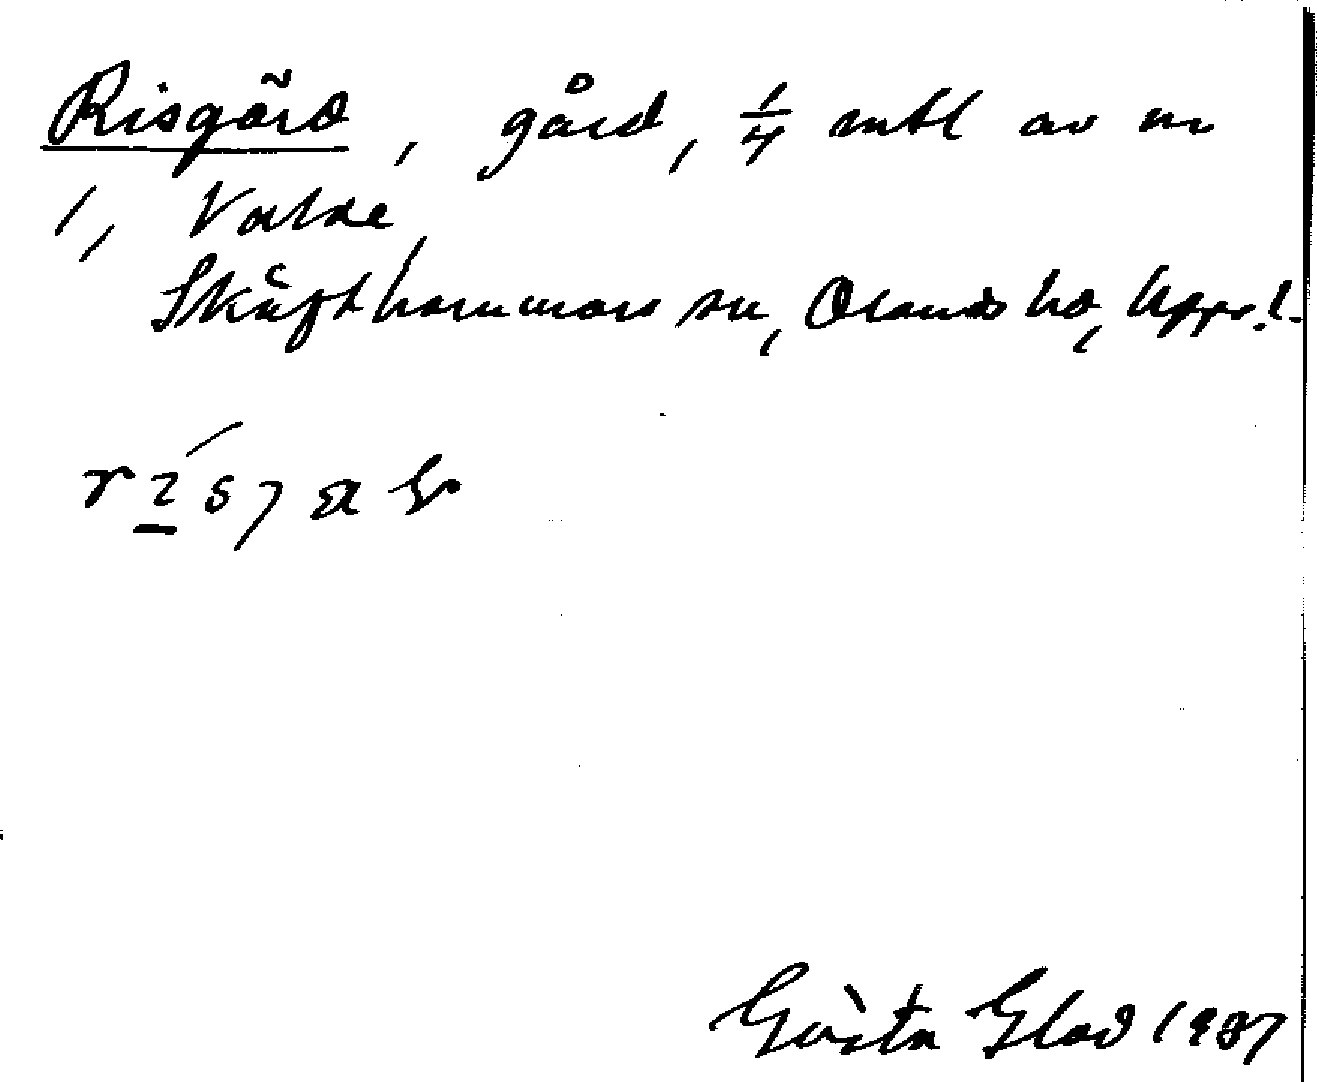 Risgård, gård, 1/4 mtl av nr
1, Valne,
Skäfthammars sn, Olands hd, Uppl.
Gösta Glad 1937